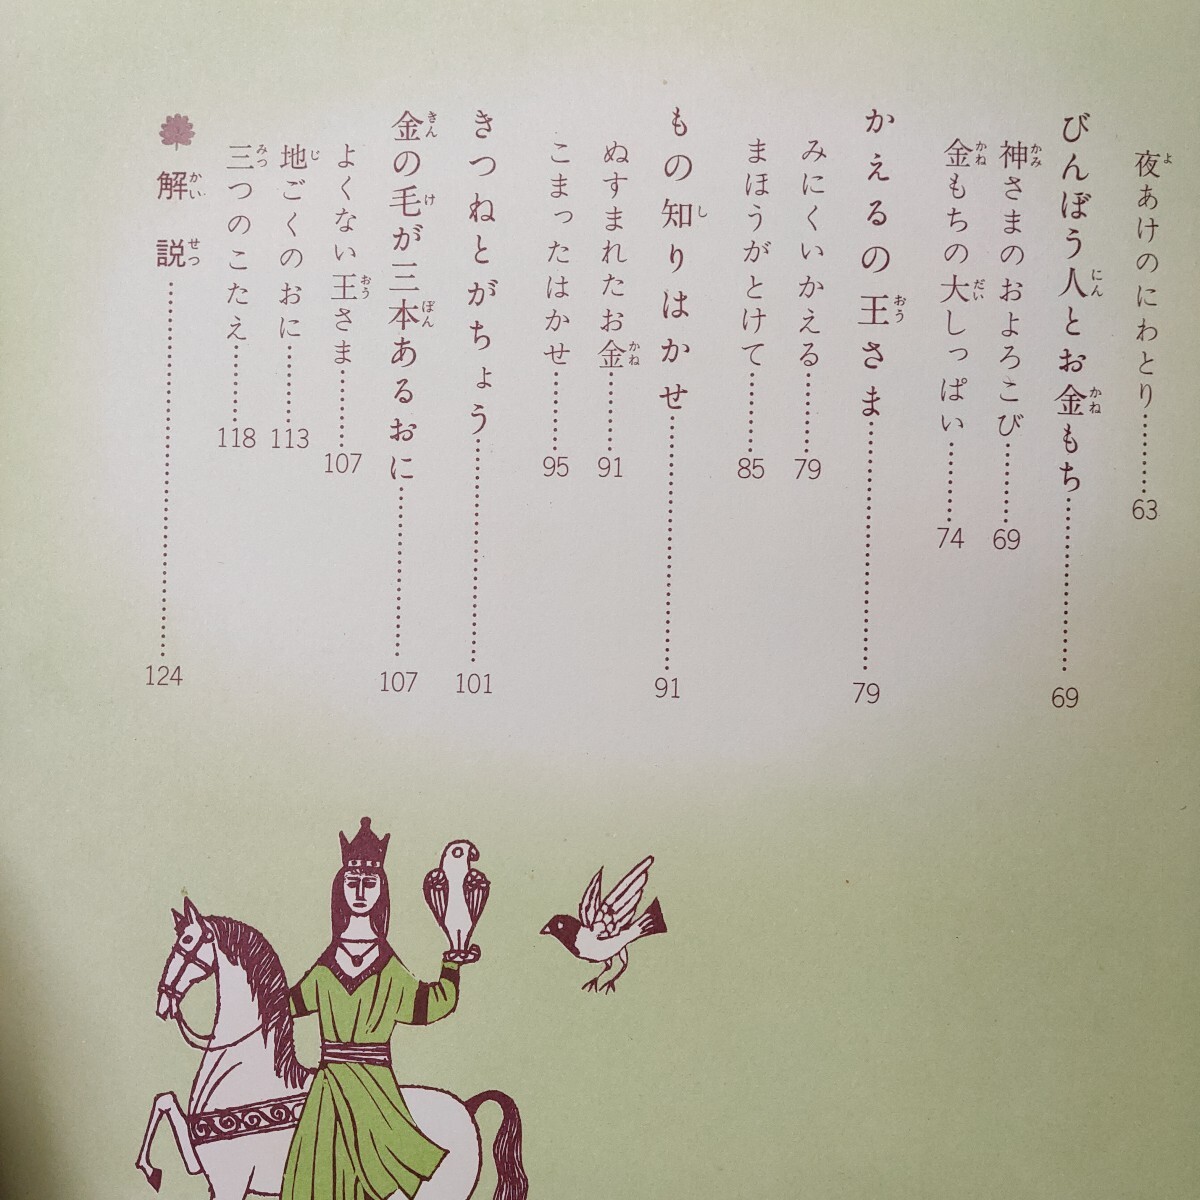 夜あけのにわとり………63
びんぼう人とお金もち………69
神さまのおよろこび………69
金もちの大しっぱい………74
かえるの王さま………79
みにくいかえる………79
まほうがとけて………85
もの知りはかせ………91
ぬすまれたお金………91
こまったはかせ………95
きつねとがちょう………101
金の毛が三本あるおに………107
よくない王さま………107
地ごくのおに………113
三つのこたえ………118
解説………124